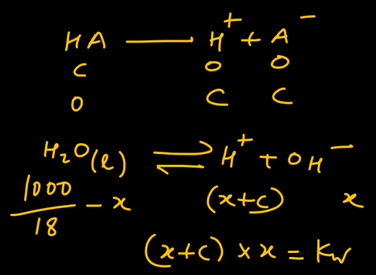 HA —— H⁺ + A⁻
C O O
O C C
H₂O(l) ⇌ H⁺ + OH⁻
1000/18 - x (x+c) x
(x+c) × x = Kw